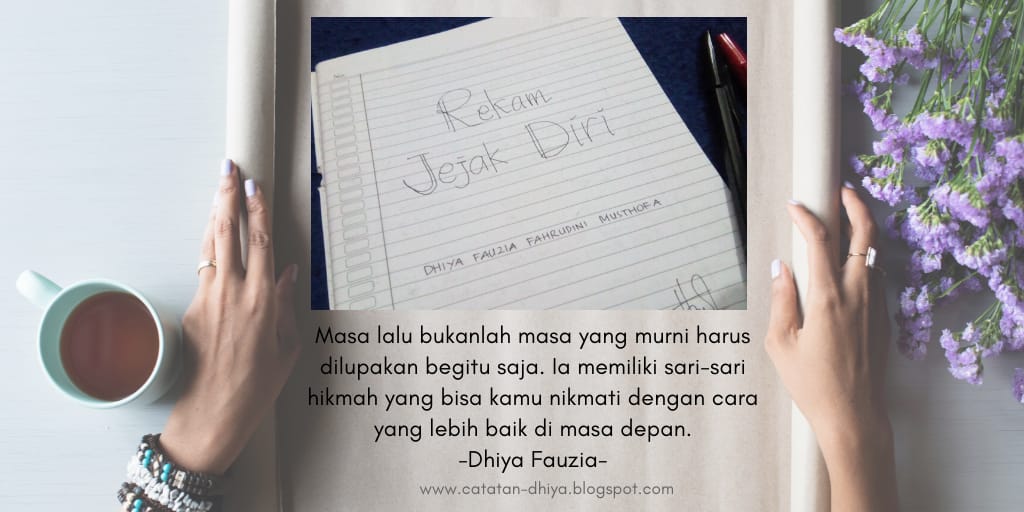 No
Rekam
Jejak Diri
DHIYA FAUZIA FAHRUDINI MUSTHOFA
Masa lalu bukanlah masa yang murni harus
dilupakan begitu saja. Ia memiliki sari-sari
hikmah yang bisa kamu nikmati dengan cara
yang lebih baik di masa depan.
-Dhiya Fauzia-
www.catatan-dhiya.blogspot.com